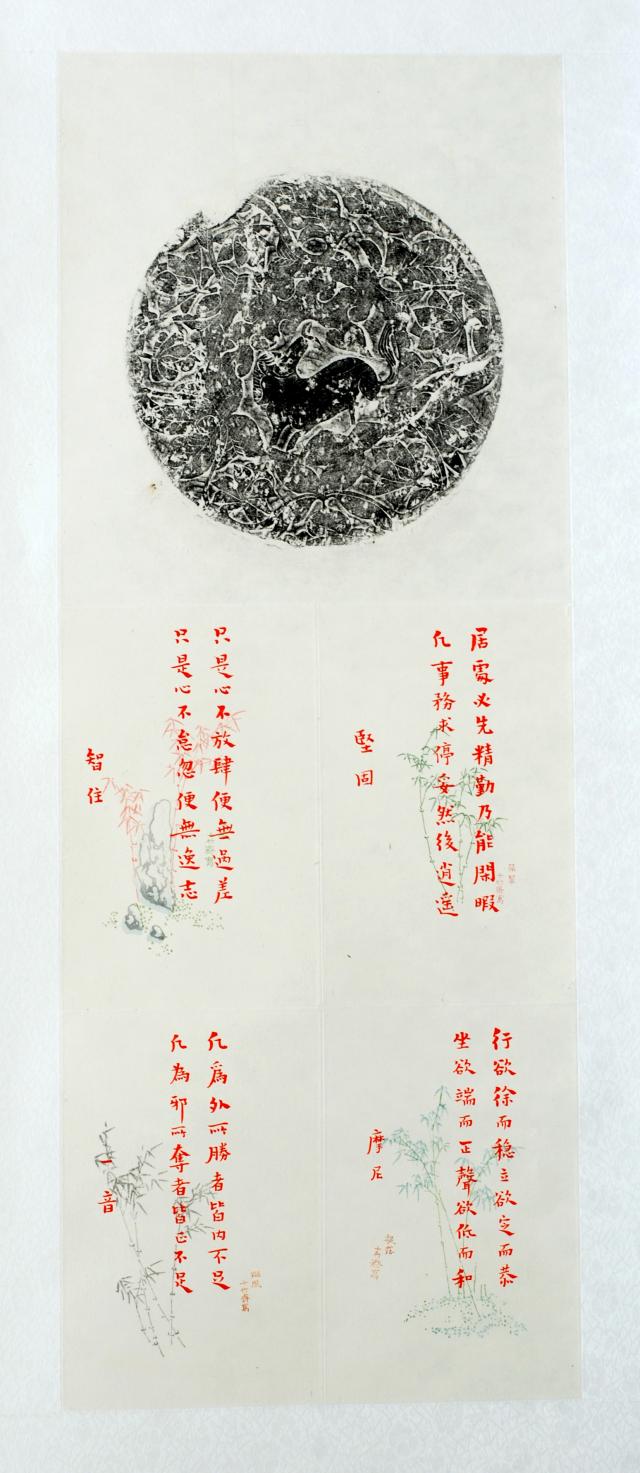 居處必先精勤乃能閑暇
凡事務求停妥然後逍遙
堅固
只是心不放肆便無過差
只是心不怠忽便無逸志
智住
行欲徐而穩立欲定而恭
坐欲端而正聲欲低而和
摩尼
凡爲外所勝者皆內不足
凡為邪所奪者皆正不足
一音